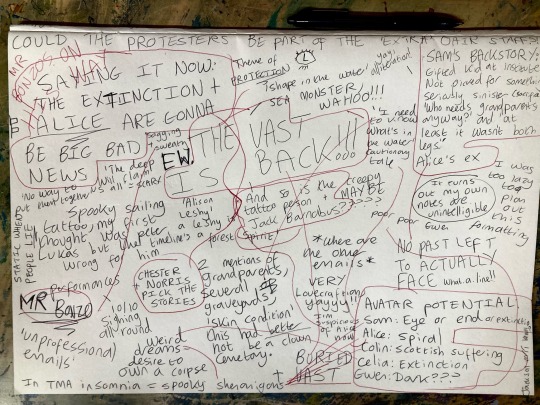 COULD THE PROTESTERS BE PART OF THE "EXTRA" OIAR STAFF
MR
BONZO'S ON
SAYING IT NOW:
THE EXTINCTION +
ALICE ARE GONNA
BE BIG BAD
NEWS
Theme of
PROTECTION
1 shape in the water
SEA MONSTER,
WAHOO!!!
yay,
alliteration!
SAM'S BACKSTORY:
Gifted kid at institute
Not picked for something
"Who needs grandparents
anyway?" and "at
least it wasn't both
legs"
Alice's ex
EW.
THE
VAST
IS
BACK!!!
"I need
to know
what's in
the water"
cautionary
tale
"The deep
will claim
us all" = SCARY
'No way to
put them together'
Spooky sailing
tattoo, my first
thought was Peter
Lukas but timeline's
wrong for him
'Alison
Leshy'
a Leshy is
a forest
spirit
And so is the creepy
tattoo person + MAYBE
Jack Barnabus?????
It turns
out my own
notes are
unintelligible.
I was
too lazy
to
plan out
this
formatting
poor poor
Gwen
NO PAST LEFT
TO ACTUALLY
FACE what a line!!
STATIC WHEN
PEOPLE LIE
performances
MR BONZO
'unprofessional'
emails
10/10
signing
all round
CHESTER +
NORRIS
PICK THE
STORIES
weird
dreams
desire to
own a corpse
2 mentions of
grandparents,
several
graveyards,
'skin condition'
this had better
not be a clown
cemetary.
*where are
the other
emails*
VERY
Lovecraftian
yayyy!!
I'm
suspicious
of Alice now
BURIED
+ VAST
AVATAR POTENTIAL
Sam: Eye or end or extinction
Alice: Spiral
Colin: Scottish suffering
Celia: Extinction
Gwen: Dark???
In TMA insomnia = spooky shenanigans